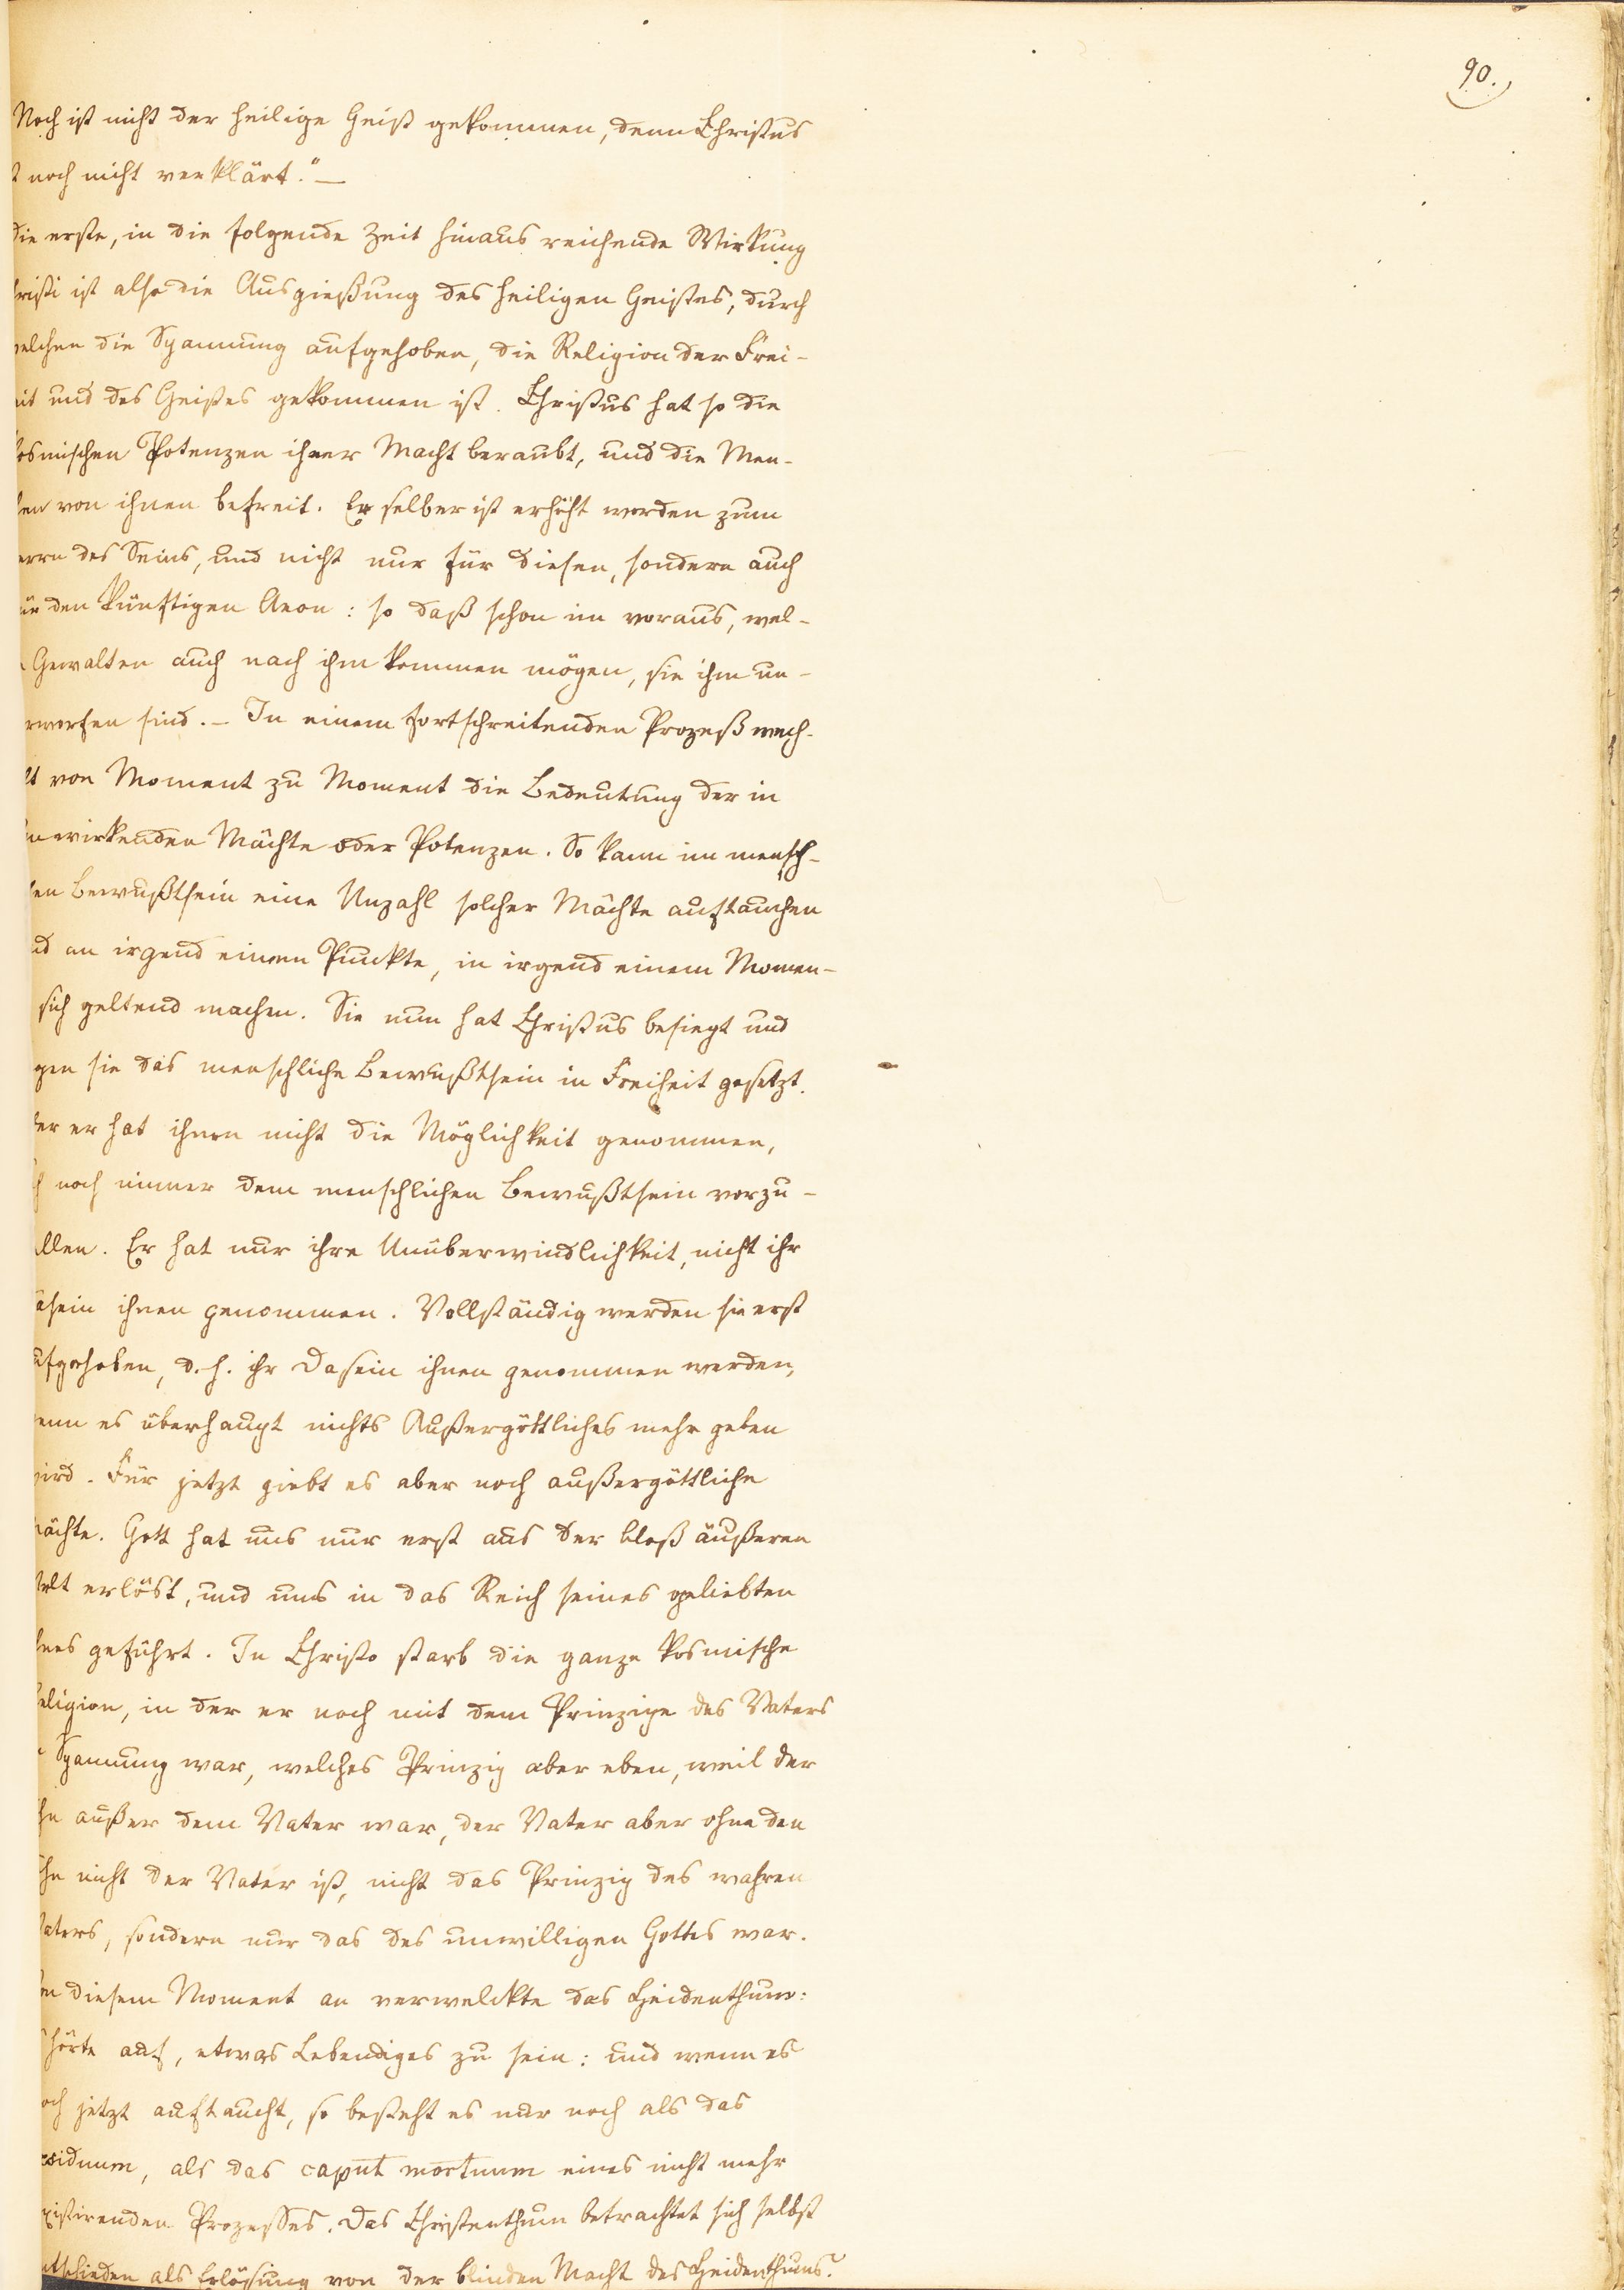 90.
Noch ist nicht der heilige Geist gekommen, denn Christus
t noch nicht verklärt." —
die erste, in die folgende Zeit hinaus reichende Wirkung
hristi ist also die Ausgießung des heiligen Geistes, durch
welchen die Spannung aufgehoben, die Religion der Frei-
eit und des Geistes gekommen ist. Christus hat so die
kosmischen Potenzen ihrer Macht beraubt, und die Men-
hen von ihnen befreit. Er selber ist erhöht worden zum
errn des Seins, und nicht nur für diesen, sondern auch
ür den künftigen Aeon: so daß schon im voraus, wel-
Gewalten auch nach ihm kommen mögen, sie ihm un-
rworfen sind. — In einem fortschreitenden Prozeß wech-
lt von Moment zu Moment die Bedeutung der in
hm wirkenden Mächte oder Potenzen. So kann im mensch-
hen Bewußtsein eine Unzahl solcher Mächte auftauchen
nd an irgend einem Punkte, in irgend einem Momen-
sich geltend machen. Sie nun hat Christus besiegt und
gen sie das menschliche Bewußtsein in Freiheit gesetzt.
ber er hat ihnen nicht die Möglichkeit genommen,
ch noch immer dem menschlichen Bewußtsein vorzu-
ellen. Er hat nur ihre Unüberwindlichkeit, nicht ihr
asein ihnen genommen. Vollständig werden sie erst
ufgehoben, d. h. ihr Dasein ihnen genommen werden,
enn es überhaupt nichts Außergöttliches mehr geben
wird. Für jetzt giebt es aber noch außergöttliche
ächte. Gott hat uns nur erst aus der bloß äußeren
elt erlöst, und uns in das Reich seines geliebten
hnes geführt. In Christo starb die ganze kosmische
eligion, in der er noch mit dem Prinzipe des Vaters
Spannung war, welches Prinzip aber eben, weil der
hn außer dem Vater war, der Vater aber ohne den
ohn nicht der Vater ist, nicht das Prinzip des wahren
aters, sondern nur das des unwilligen Gottes war.
on diesem Moment an verwelckte das Heidenthum:
hörte auf, etwas Lebendiges zu sein: und wenn es
och jetzt auftaucht, so besteht es nur noch als das
esiduum, als das caput mortuum eines nicht mehr
xistirenden Prozesses. Das Christenthum betrachtet sich selbst
ntschieden als Erlösung von der blinden Macht des Heidenthums.